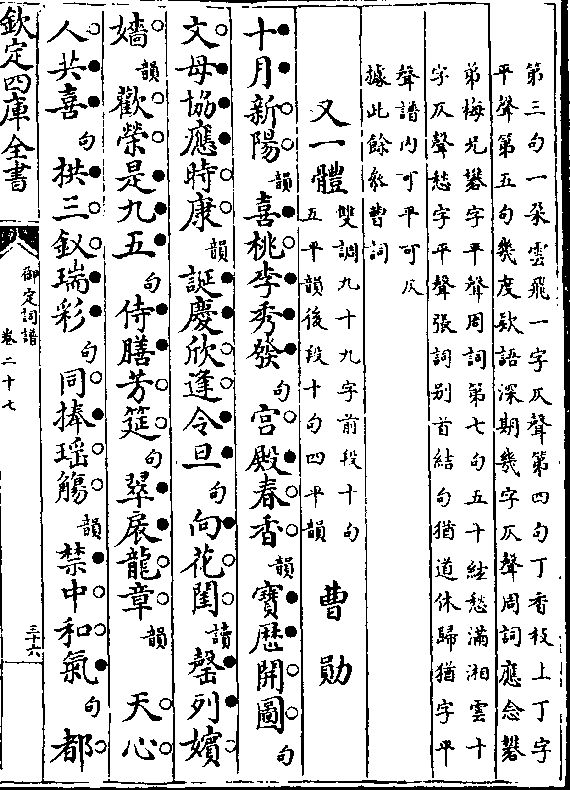 第三句一朵雲飛一字仄聲第四句丁香枝上丁字
平聲第五句幾度欵語深期幾字仄聲周詞應念礬
弟梅兄礬字平聲周詞第七句五十絃愁滿湘雲十
字仄聲愁字平聲張詞别首結句猶道休歸猶字平
聲譜内可平可仄
據此餘參曹詞
又一體 雙調九十九字前段十句
五平韻後段十句四平韻 曹勛
十月新陽韻喜桃李秀發句宫殿春香韻寶厯開圖句
文母協應時康韻誕慶欣逢令旦句向花閨讀罄列嬪
嬙韻歡榮是九五句侍膳芳筵句翠扆龍章韻 天心
人共喜句拱三釵瑞彩句同捧瑶觴韻禁中和氣句都
欽定四庫全書
御定詞譜
卷二十七
三十六